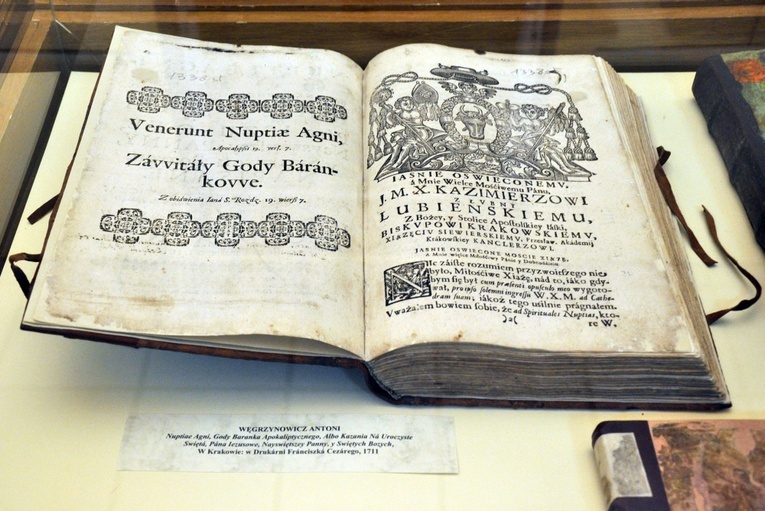 1338
Venerunt Nuptiæ Agni,
Apocalipsis 19. vers. 7.
Závvitáły Gody Báran-
kovve.
Z obiáwienia Janá S. Rozdz. 19. wierß 7.
1338
IASNIE OSWIECONEMV,
A Mnie Wielce Mośćiwemu Pánu,
J. M. X. KAZIMIERZOWI
Z ŁVBNY
LUBIENSKIEMU,
Z Bożey, y Stolice Apostolskiey łáski,
BISKVPOWI KRAKOWSKIEMV,
XIAZĘCIV SIEWIERSKIEMV, Przesław. Akádemij
Krakowskiey KANCLERZOWI.
JASNIE OSWIECONE MOSCIE XIAZE
A Mnie wielce Miłośćiwy Pánie y Dobrodzieiu.
NIc záiste rozumiem przyzwoitszego nie
było, Miłośćiwe Xiążę, nád to, iáko gdy-
bym się był cum præsenti opusculo meo wygoto-
wał, pro ipso solemni ingressu W. X. M. ad Cathe-
dram suam; iákoż tego uśilnie prágnąłem.
Vważałem bowiem sobie, że ad Spirituales Nuptias, kto-
):( re W.
WĘGRZYNOWICZ ANTONI
Nuptiae Agni, Gody Baranka Apokaliptycznego, Albo Kazania Ná Uroczyste
Swiętá, Pána Iezusowe, Nayswiętszey Panny, y Swiętych Bozych,
W Krakowie: w Drukárni Fránciszká Cezárego, 1711